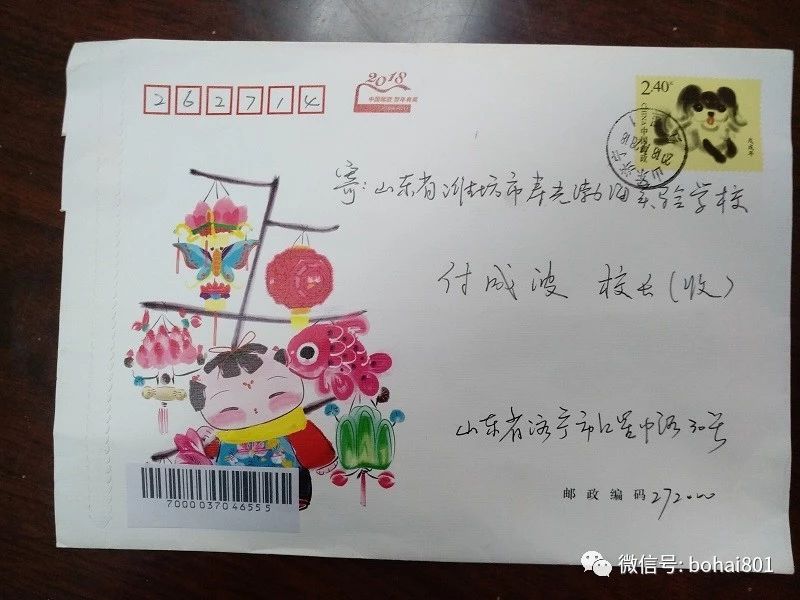 262714
2018
中国邮政 贺年有奖
2.40元
中国邮政
戊戌年
山东济宁
寄:山东省潍坊市寿光渤海实验学校
付成波 校长(收)
山东省济宁市红星中路30号
邮政编码272000
7000037046555
微信号: bohai801